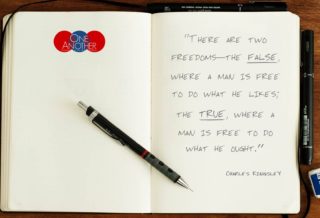 ONE
ANOTHER
"THERE ARE TWO
FREEDOMS—THE FALSE,
WHERE A MAN IS FREE
TO DO WHAT HE LIKES;
THE TRUE, WHERE A
MAN IS FREE TO DO
WHAT HE OUGHT."
CHARLES KINGSLEY